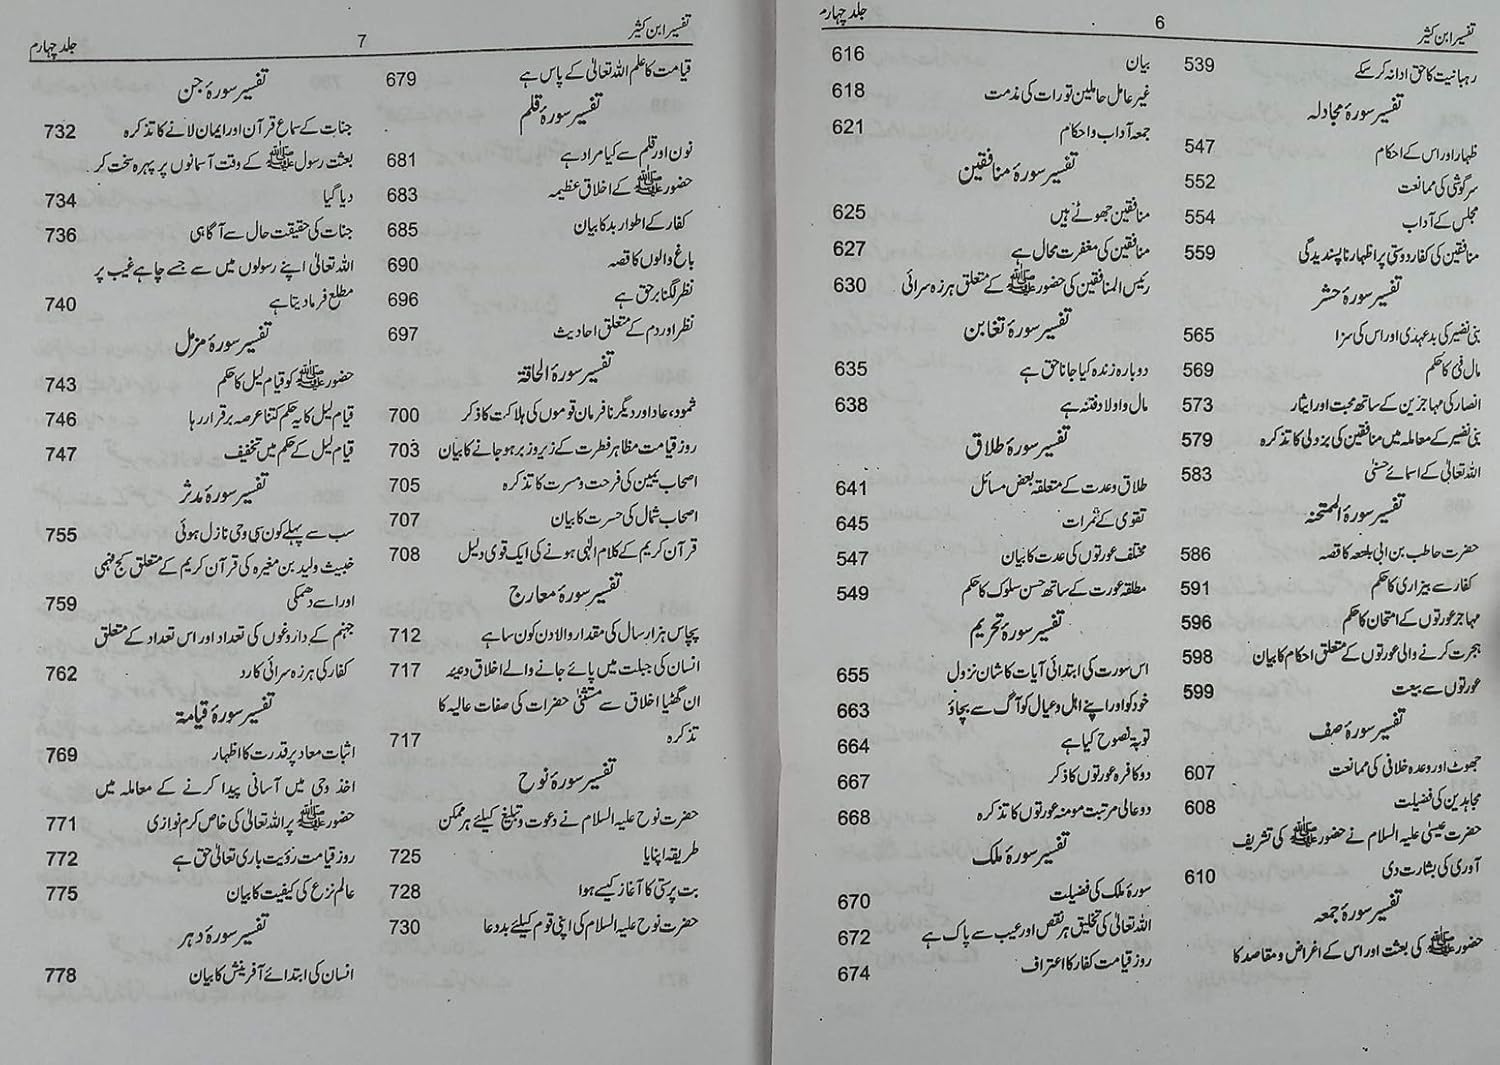 تفسیر ابن کثیر 6 جلد چہارم
رہبانیت کا حق ادا نہ کر سکے 539
تفسیر سورۂ مجادلہ
ظہار اور اس کے احکام 547
سرگوشی کی ممانعت 552
مجلس کے آداب 554
منافقین کی کفار دوستی پر اظہار ناپسندیدگی 559
تفسیر سورۂ حشر
بنی نضیر کی بدعہدی اور اس کی سزا 565
مال فئی کا حکم 569
انصار کی مہاجرین کے ساتھ محبت اور ایثار 573
بنی نضیر کے معاملہ میں منافقین کی بزدلی کا تذکرہ 579
اللہ تعالیٰ کے اسمائے حسنیٰ 583
تفسیر سورۂ الممتحنہ
حضرت حاطب بن ابی بلتعہ کا قصہ 586
کفار سے بیزاری کا حکم 591
مہاجر عورتوں کے امتحان کا حکم 596
ہجرت کرنے والی عورتوں کے متعلق احکام کا بیان 598
عورتوں سے بیعت 599
تفسیر سورۂ صف
جھوٹ اور وعدہ خلافی کی ممانعت 607
مجاہدین کی فضیلت 608
حضرت عیسیٰ علیہ السلام نے حضور ﷺ کی تشریف
آوری کی بشارت دی 610
تفسیر سورۂ جمعہ
حضور ﷺ کی بعثت اور اس کے اغراض و مقاصد کا
بیان 616
غیر عامل حاملین تورات کی مذمت 618
جمعہ آداب و احکام 621
تفسیر سورۂ منافقین
منافقین جھوٹے ہیں 625
منافقین کی مغفرت محال ہے 627
رئیس المنافقین کی حضور ﷺ کے متعلق ہرزہ سرائی 630
تفسیر سورۂ تغابن
دوبارہ زندہ کیا جانا حق ہے 635
مال و اولاد فتنہ ہے 638
تفسیر سورۂ طلاق
طلاق و عدت کے متعلقہ بعض مسائل 641
تقویٰ کے ثمرات 645
مختلف عورتوں کی عدت کا بیان 547
مطلقہ عورت کے ساتھ حسن سلوک کا حکم 549
تفسیر سورۂ تحریم
اس سورت کی ابتدائی آیات کا شان نزول 655
خود کو اور اپنے اہل و عیال کو آگ سے بچاؤ 663
توبۃ نصوح کیا ہے 664
دو کافرہ عورتوں کا ذکر 667
دو عالی مرتبت مومنہ عورتوں کا تذکرہ 668
تفسیر سورۂ ملک
سورۂ ملک کی فضیلت 670
اللہ تعالیٰ کی تخلیق ہر نقص اور عیب سے پاک ہے 672
روز قیامت کفار کا اعتراف 674
تفسیر ابن کثیر 7 جلد چہارم
قیامت کا علم اللہ تعالیٰ کے پاس ہے 679
تفسیر سورۂ قلم
نون اور قلم سے کیا مراد ہے 681
حضور ﷺ کے اخلاق عظیمہ 683
کفار کے اطوار بد کا بیان 685
باغ والوں کا قصہ 690
نظر لگنا برحق ہے 696
نظر اور دم کے متعلق احادیث 697
تفسیر سورۂ الحاقۃ
ثمود، عاد اور دیگر نافرمان قوموں کی ہلاکت کا ذکر 700
روز قیامت مظاہر فطرت کے زیر و زبر ہو جانے کا بیان 703
اصحاب یمین کی فرحت و مسرت کا تذکرہ 705
اصحاب شمال کی حسرت کا بیان 707
قرآن کریم کے کلام الٰہی ہونے کی ایک قوی دلیل 708
تفسیر سورۂ معارج
پچاس ہزار سال کی مقدار والا دن کون سا ہے 712
انسان کی جبلت میں پائے جانے والے اخلاق دعیہ 717
ان گھٹیا اخلاق سے مستثنیٰ حضرات کی صفات عالیہ کا
تذکرہ 717
تفسیر سورۂ نوح
حضرت نوح علیہ السلام نے دعوت و تبلیغ کیلئے ہر ممکن
طریقہ اپنایا 725
بت پرستی کا آغاز کیسے ہوا 728
حضرت نوح علیہ السلام کی اپنی قوم کیلئے بددعا 730
تفسیر سورۂ جن
جنات کے سماع قرآن اور ایمان لانے کا تذکرہ 732
بعثت رسول ﷺ کے وقت آسمانوں پر پہرہ سخت کر
دیا گیا 734
جنات کی حقیقت حال سے آگاہی 736
اللہ تعالیٰ اپنے رسولوں میں سے جسے چاہے غیب پر
مطلع فرما دیتا ہے 740
تفسیر سورۂ مزمل
حضور ﷺ کو قیام لیل کا حکم 743
قیام لیل کا یہ حکم کتنا عرصہ برقرار رہا 746
قیام لیل کے حکم میں تخفیف 747
تفسیر سورۂ مدثر
سب سے پہلے کون سی وحی نازل ہوئی 755
خبیث ولید بن مغیرہ کی قرآن کریم کے متعلق کج فہمی
اور اسے دھمکی 759
جہنم کے داروغوں کی تعداد اور اس تعداد کے متعلق
کفار کی ہرزہ سرائی کا رد 762
تفسیر سورۂ قیامۃ
اثبات معاد پر قدرت کا اظہار 769
اخذ وحی میں آسانی پیدا کرنے کے معاملہ میں
حضور ﷺ پر اللہ تعالیٰ کی خاص کرم نوازی 771
روز قیامت رؤیت باری تعالیٰ حق ہے 772
عالم نزع کی کیفیت کا بیان 775
تفسیر سورۂ دہر
انسان کی ابتدائے آفرینش کا بیان 778